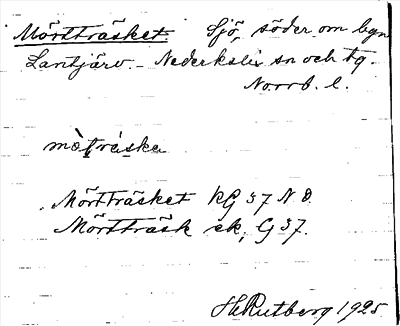 Mörtträsket. Sjö, söder om byn
Lantjärv. - Nederkalix sn och tg.
Norrb. l.
mò̀ṭrás̱ka
Mörtträsket KG 37 N O.
Mörtträsk ek. G 37.
H Rutberg 1925